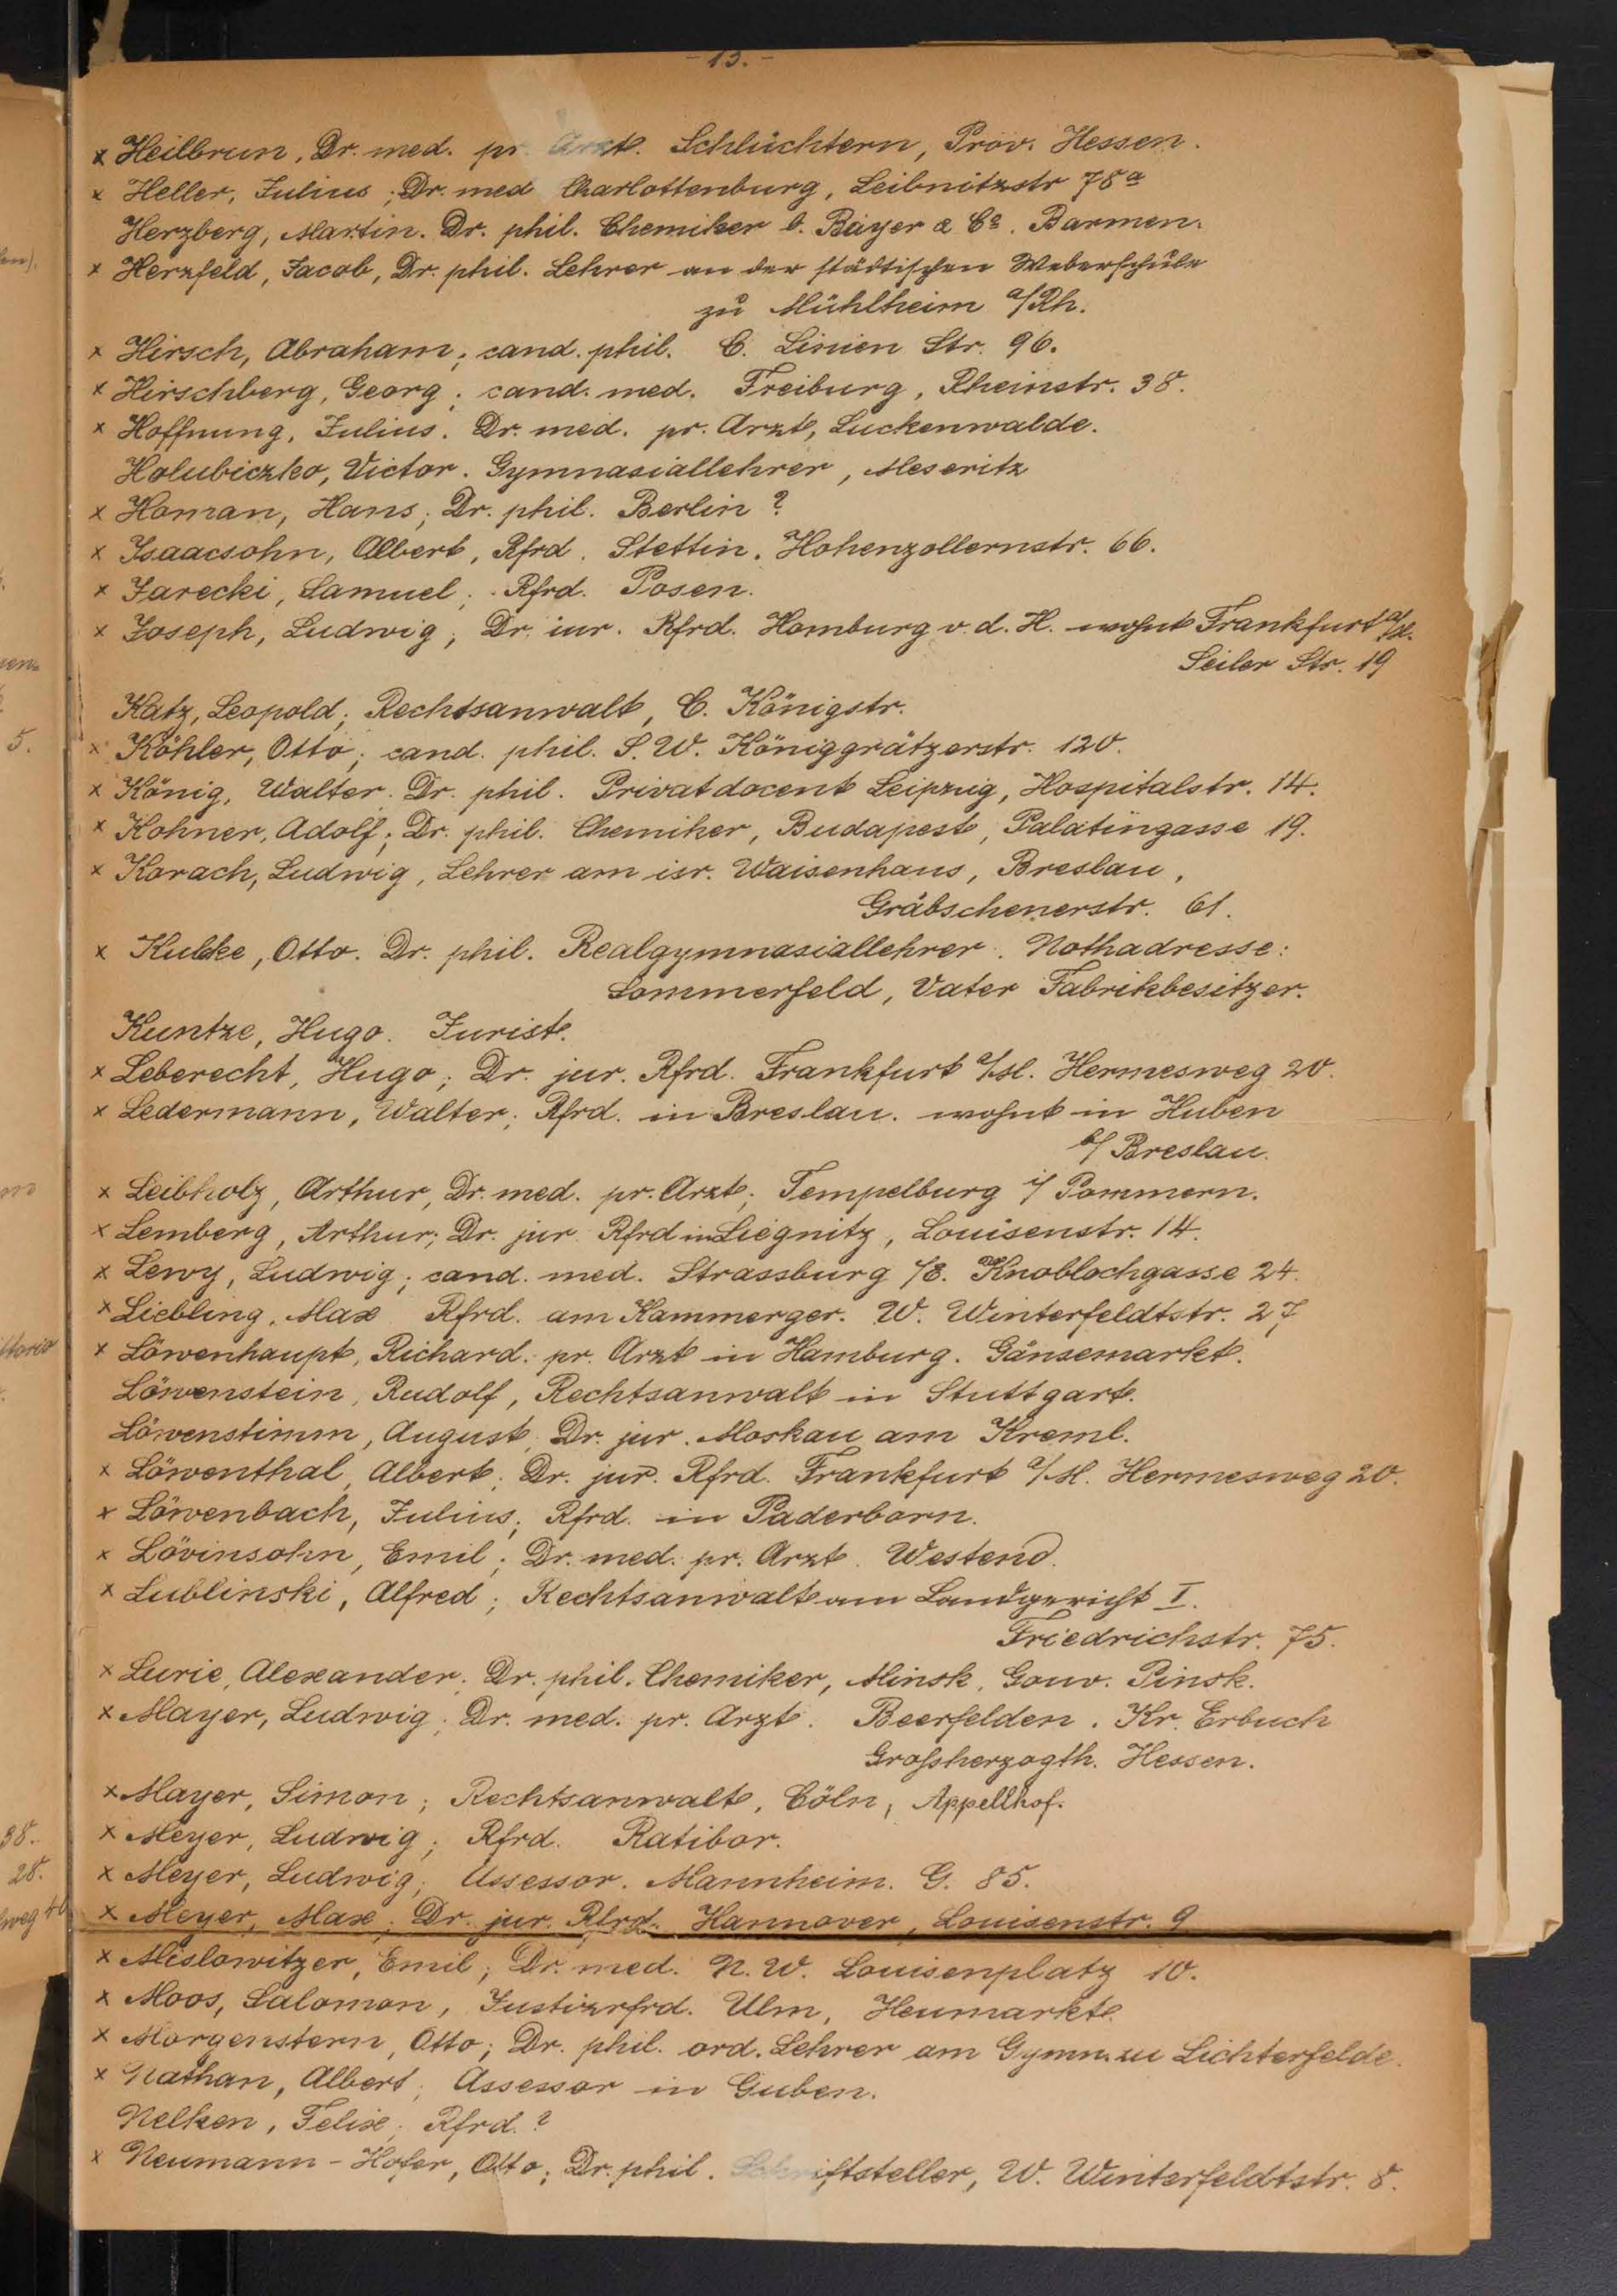 - 13. -
x Heilbrun, Dr. med. pr. Arzt. Schlüchtern, Prov. Hessen.
x Heller, Julius; Dr. med Charlottenburg, Leibnitzstr 78a
Herzberg, Martin. Dr. phil. Chemiker b. Bayer & Co. Barmen.
x Herzfeld, Jacob, Dr. phil. Lehrer an der städtischen Weberschule
zu Mühlheim a/Rh.
x Hirsch, Abraham; cand. phil. C. Linien Str. 96.
x Hirschberg, Georg; cand. med. Freiburg, Rheinstr. 38.
x Hoffnung, Julius. Dr. med. pr. Arzt, Luckenwalde.
Holubiczko, Victor. Gymnasiallehrer, Meseritz
x Homan, Hans; Dr. phil. Berlin?
x Isaacsohn, Albert, Rfrd. Stettin. Hohenzollernstr. 66.
x Jarecki, Samuel; Rfrd. Posen.
x Joseph, Ludwig; Dr. iur. Rfrd. Homburg v. d. H. wohnt Frankfurt a/M.
Seiler Str. 19
Katz, Leopold; Rechtsanwalt, C. Königstr.
x Köhler, Otto; cand. phil. S.W. Königgrätzerstr. 120.
x König, Walter. Dr. phil. Privatdocent Leipzig, Hospitalstr. 14.
x Kohner, Adolf; Dr. phil. Chemiker, Budapest, Palatingasse 19.
x Korach, Ludwig, Lehrer am isr. Waisenhaus, Breslau,
Gräbschenerstr. 61.
x Kubke, Otto. Dr. phil. Realgymnasiallehrer. Nothadresse:
Sommerfeld, Vater Fabrikbesitzer.
Kuntze, Hugo. Jurist.
x Leberecht, Hugo; Dr. jur. Rfrd. Frankfurt a/M. Hermesweg 20.
x Ledermann, Walter; Rfrd. in Breslau. wohnt in Huben
b/ Breslau.
x Leibholz, Arthur, Dr. med. pr. Arzt; Tempelburg i/ Pommern.
x Lemberg, Arthur; Dr. jur. Rfrd in Liegnitz, Louisenstr. 14.
x Lewy, Ludwig; cand. med. Strassburg /E. Knoblochgasse 24.
x Liebling, Max Rfrd. am Kammerger. W. Winterfeldtstr. 27
x Löwenhaupt, Richard. pr. Arzt in Hamburg. Gänsemarkt.
Löwenstein, Rudolf, Rechtsanwalt in Stuttgart.
Löwenstimm, August, Dr. jur. Moskau am Kreml.
x Löwenthal, Albert; Dr. jur. Rfrd. Frankfurt a/M. Hermesweg 20.
x Löwenbach, Julius; Rfrd. in Paderborn.
x Lövinsohn, Emil; Dr. med. pr. Arzt. Westend.
x Lublinski, Alfred; Rechtsanwalt am Landgericht I.
Friedrichstr. 75.
x Lurie, Alexander. Dr. phil. Chemiker, Minsk, Gouv. Pinsk.
x Mayer, Ludwig. Dr. med. pr. Arzt. Beerfelden. Kr. Erbuch
Grossherzogth. Hessen.
x Mayer, Simon; Rechtsanwalt, Cöln, Appellhof.
x Meyer, Ludwig; Rfrd. Ratibor.
x Meyer, Ludwig; Assessor. Mannheim. G. 85.
x Meyer, Max; Dr. jur. Rfrd. Hannover, Louisenstr. 9
x Mislowitzer, Emil; Dr. med. N.W. Louisenplatz 10.
x Moos, Salomon, Justizrfrd. Ulm, Heumarkt.
x Morgenstern, Otto; Dr. phil. ord. Lehrer am Gymn. zu Lichterfelde.
x Nathan, Albert; Assessor in Guben.
Nelken, Felix; Rfrd.?
x Neumann-Hofer, Otto; Dr. phil. Schriftsteller, W. Winterfeldtstr. 8.